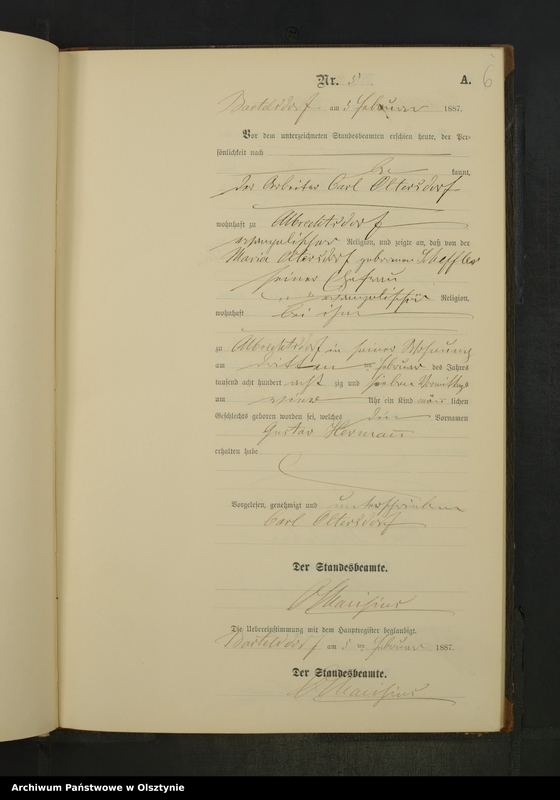 6
Nr. 5. A.
Bartelsdorf am 5 Februar 1887.
Vor dem unterzeichneten Standesbeamten erschien heute, der Per-
sönlichkeit nach
be kannt,
der Arbeiter Carl Oltersdorf
wohnhaft zu Albrechtsdorf
evangelischer Religion, und zeigte an, daß von der
Maria Oltersdorf geborenen Scheffler
seiner Ehefrau
evangelischer Religion,
wohnhaft bei ihm
zu Albrechtsdorf in seiner Wohnung
am dritten Februar des Jahres
tausend acht hundert acht zig und sieben Vormittags
um Uhr ein Kind männ lichen
Geschlechts geboren worden sei, welches die Vornamen
Gustav Hermann
erhalten habe
Vorgelesen, genehmigt und unterschrieben
Carl Oltersdorf
Der Standesbeamte.
Die Uebereinstimmung mit dem Hauptregister beglaubigt.
Bartelsdorf am 5 ten Februar 1887.
Der Standesbeamte.
Archiwum Państwowe w Olsztynie